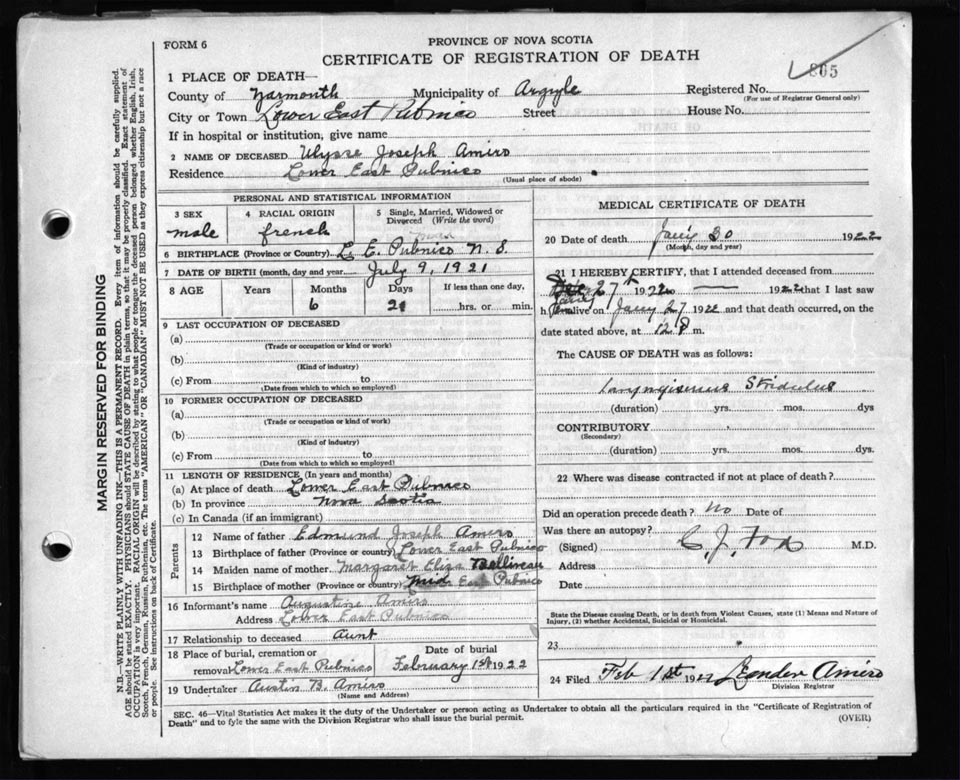 FORM 6
PROVINCE OF NOVA SCOTIA
CERTIFICATE OF REGISTRATION OF DEATH
805
1 PLACE OF DEATH—
County of Yarmouth Municipality of Argyle Registered No.
(For use of Registrar General only)
City or Town Lower East Pubnico Street House No.
If in hospital or institution, give name
2 NAME OF DECEASED Ulysse Joseph Amiro
Residence Lower East Pubnico
(Usual place of abode)
PERSONAL AND STATISTICAL INFORMATION
3 SEX
male
4 RACIAL ORIGIN
french
5 Single, Married, Widowed or
Divorced (Write the word)
6 BIRTHPLACE (Province or Country) L. E. Pubnico N. S
7 DATE OF BIRTH (month, day and year) July 9, 1921
8 AGE Years Months Days If less than one day,
6 21 hrs. or min.
9 LAST OCCUPATION OF DECEASED
(a)
(Trade or occupation or kind or work)
(b)
(Kind of industry)
(c) From to
(Date from which to which so employed)
10 FORMER OCCUPATION OF DECEASED
(a)
(Trade or occupation or kind of work)
(b)
(Kind of industry)
(c) From to
(Date from which to which so employed)
11 LENGTH OF RESIDENCE (In years and months)
(a) At place of death Lower East Pubnico
(b) In province Nova Scotia
(c) In Canada (if an immigrant)
Parents
12 Name of father Edmund Joseph Amiro
13 Birthplace of father (Province or country) Lower East Pubnico
14 Maiden name of mother Margaret Eliza Bellineau
15 Birthplace of mother (Province or country) Mid East Pubnico
16 Informant's name Augustine Amiro
Address Lower East Pubnico
17 Relationship to deceased Aunt
18 Place of burial, cremation or Date of burial
removal Lower East Pubnico February 1st 1922
19 Undertaker Austin B. Amiro
(Name and Address)
MEDICAL CERTIFICATE OF DEATH
20 Date of death Jany 30 1922
(Month, day and year)
21 I HEREBY CERTIFY, that I attended deceased from
27th 1922 to 1922 that I last saw
h alive on Jany 27 1922 and that death occurred, on the
date stated above, at 12 P m.
The CAUSE OF DEATH was as follows:
Laryngismus Stridulus
(duration) yrs. mos. dys
CONTRIBUTORY
(Secondary)
(duration) yrs. mos. dys.
22 Where was disease contracted if not at place of death?
Did an operation precede death? No Date of
Was there an autopsy?
(Signed) C. J. Fox M.D.
Address
Date
State the Disease causing Death, or in death from Violent Causes, state (1) Means and Nature of
Injury, (2) whether Accidental, Suicidal or Homicidal.
23
24 Filed Feb 1st 1922 Leander Amiro
Division Registrar
SEC. 46—Vital Statistics Act makes it the duty of the Undertaker or person acting as Undertaker to obtain all the particulars required in the "Certificate of Registration of
Death" and to fyle the same with the Division Registrar who shall issue the burial permit.
(OVER)
MARGIN RESERVED FOR BINDING
N.B.—WRITE PLAINLY WITH UNFADING INK—THIS IS A PERMANENT RECORD. Every item of information should be carefully supplied.
AGE should be stated EXACTLY. PHYSICIANS should STATE CAUSE OF DEATH in plain terms, so that it may be properly classified. Exact statement of
OCCUPATION is very important. RACIAL ORIGIN will be described by stating to what people or tongue the deceased person belonged whether English, Irish,
Scotch, French, German, Russian, Ruthenian, etc. The terms "AMERICAN" OR "CANADIAN" MUST NOT BE USED as they express citizenship but not a race
or people. See instructions on back of Certificate.